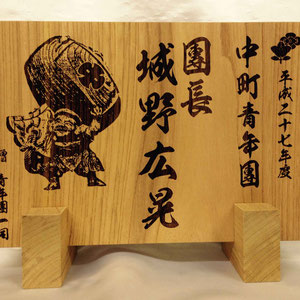 平成二十七年度
中町青年團
團長
城野広晃
贈 青年團一同